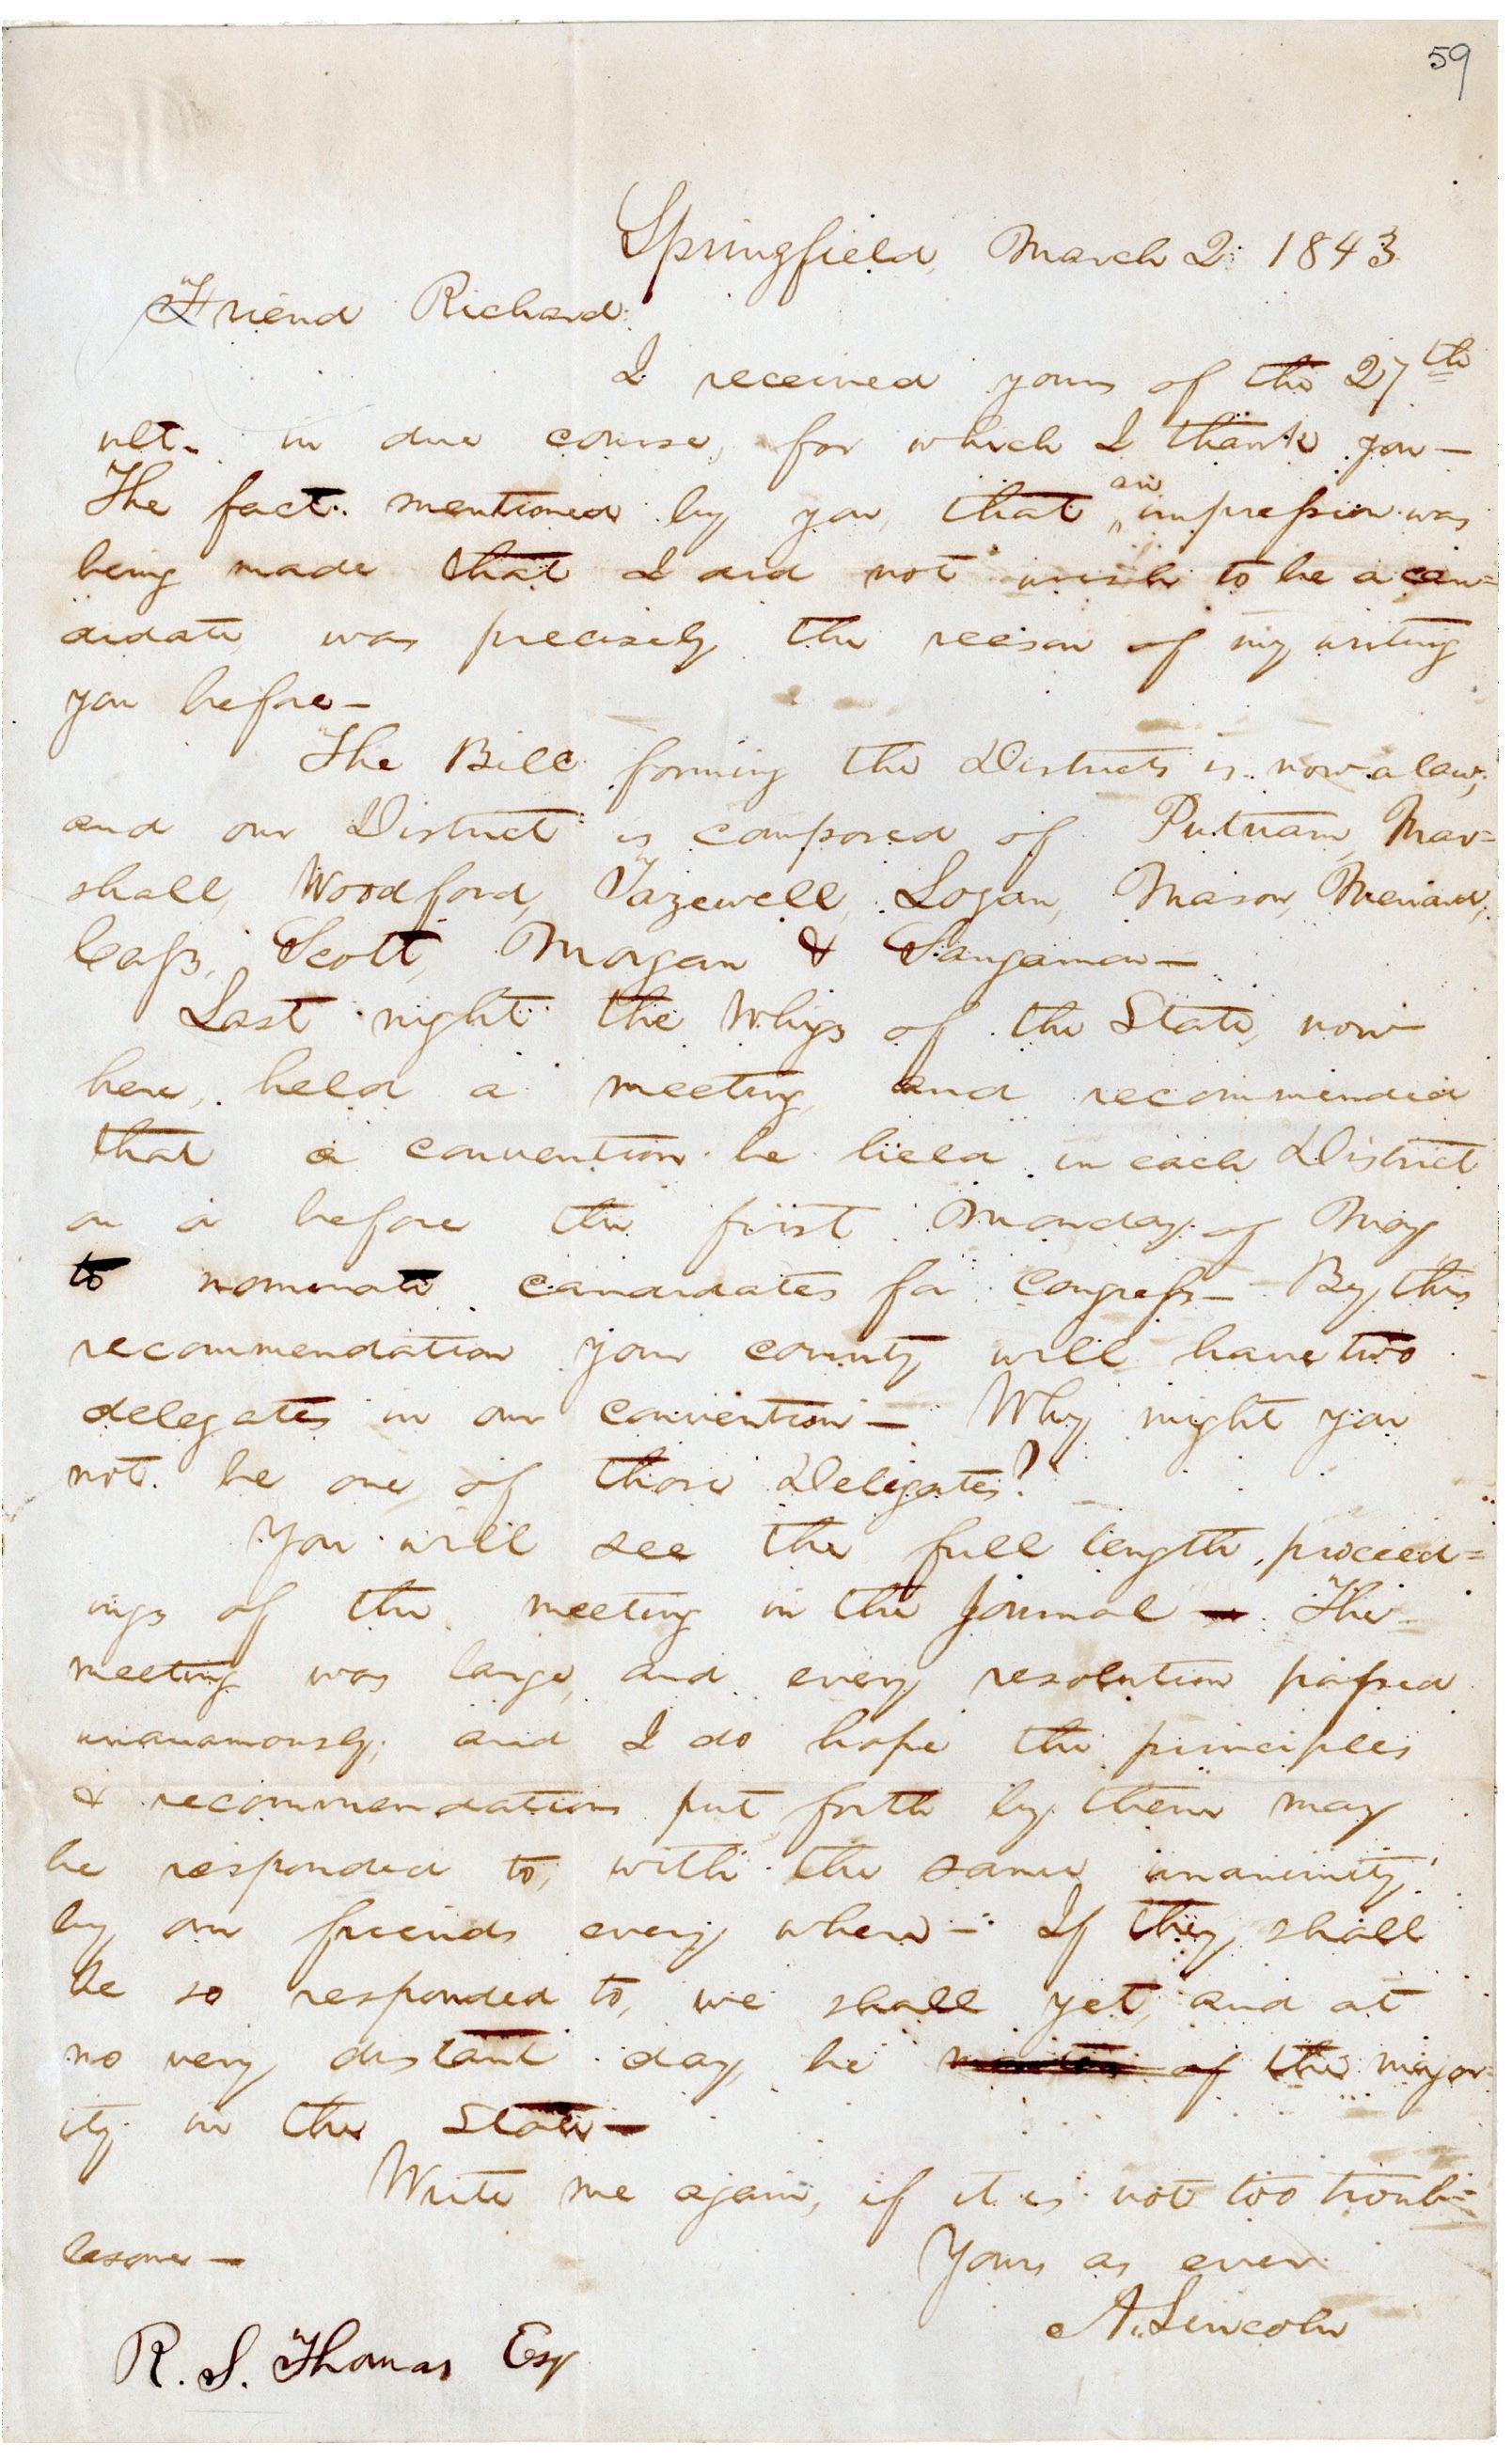 59
Springfield, March 2. 1843
Friend Richard:
I received yours of the 27th
ult. in due course, for which I thank you—
The fact mentioned by you, that an impression was
being made that I did not wish to be a can=
didate, was precisely the reason of my writing
you before—
The Bill forming the Districts is now a law;
and our District is composed of Putnam, Mar=
shall, Woodford, Tazewell, Logan, Mason, Menard,
Cass, Scott, Morgan & Sangamon—
Last night the Whigs of the State, now
here, held a meeting, and recommended
that a convention be held in each District
on or before the first Monday of May
to nominate candidates for Congress— By this
recommendation your county will have two
delegates in our convention— Why might you
not be one of those Delegates?
You will see the full length proceed=
ings of the meeting in the Journal— The
meeting was large, and every resolution passed
unanamously; and I do hope the principles
& recommendations put forth by them may
be responded to, with the same unanimity,
by our friends every where— If they shall
be so responded to, we shall yet, and at
no very distant day, be of the major=
ity in the State—
Write me again, if it is not too troub=
lesome—
Yours as ever
A. Lincoln
R. S. Thomas Esq